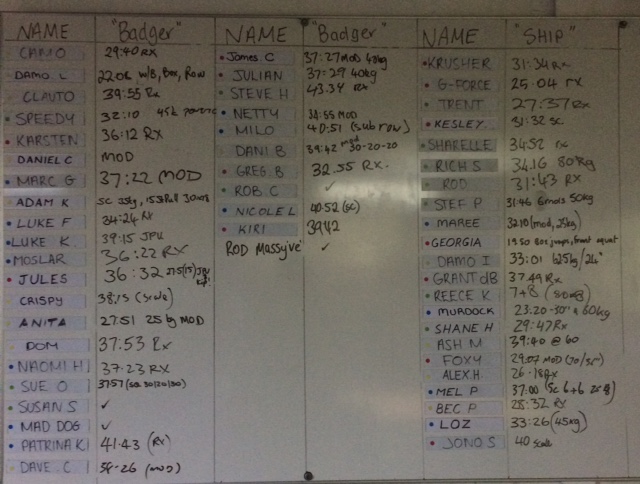 NAME "Badger"
CAMO 29:40 RX
DAMO L 22.06 w/B, Box, Row
CLAUTO 39:55 Rx
SPEEDY 32:10 45k
KARSTEN 36:12 RX
DANIEL C MOD
MARC G 37:22 MOD
ADAM K
LUKE F 34:24 RX
LUKE K 39:15
MOSLAR 36:22 RX
JULES 36:32
CRISPY 38:15 (Scale)
ANITA 27:51 25kg MOD
DOM 37:53 Rx
NAOMI H 37:23 RX
SUE O 37:57
SUSAN S ✓
MAD DOG ✓
PATRINA K 41:43 (RX)
DAVE.C 54.26 (mod)
NAME "Badger"
James C 37:27 MOD 40kg
JULIAN 37:29 40kg
STEVE H 43.34 RX
NETTY 34:55 MOD
MILO 40:51 (sub row)
DANI B 39:42 mod 30-20-20
GREG.B 32.55 RX.
ROB.C ✓
NICOLE L 40:52 (sc)
KIRI 39:42
ROD Massyve ✓
NAME "SHIP"
KRUSHER 31:34 Rx
G-FORCE 25.04 rx
TRENT 27:37 Rx
KESLEY 31:32 sc
SHARELLE 34:52 rx
RICH S 34.16 80kg
ROD 31:43 RX
STEF P 31:46 6mols 50kg
MAREE 32:10 (mod, 25kg)
GEORGIA 19.50 box jumps, front squat
DAMO I 33:01 62.5kg/24"
GRANT dB 37.49 Rx
REECE K 7+8 (50kg)
MURDOCK 23:20 -30" @ 60kg
SHANE H 29:47 Rx
ASH M 39:40 @ 60
FOXY 29:07 MOD
ALEX.H. 26.18 Rx
MEL P 37:00 (Sc 6+6 25kg)
BEC P 28:32 RX
LOZ 33:26 (45kg)
JONO S 40 scale